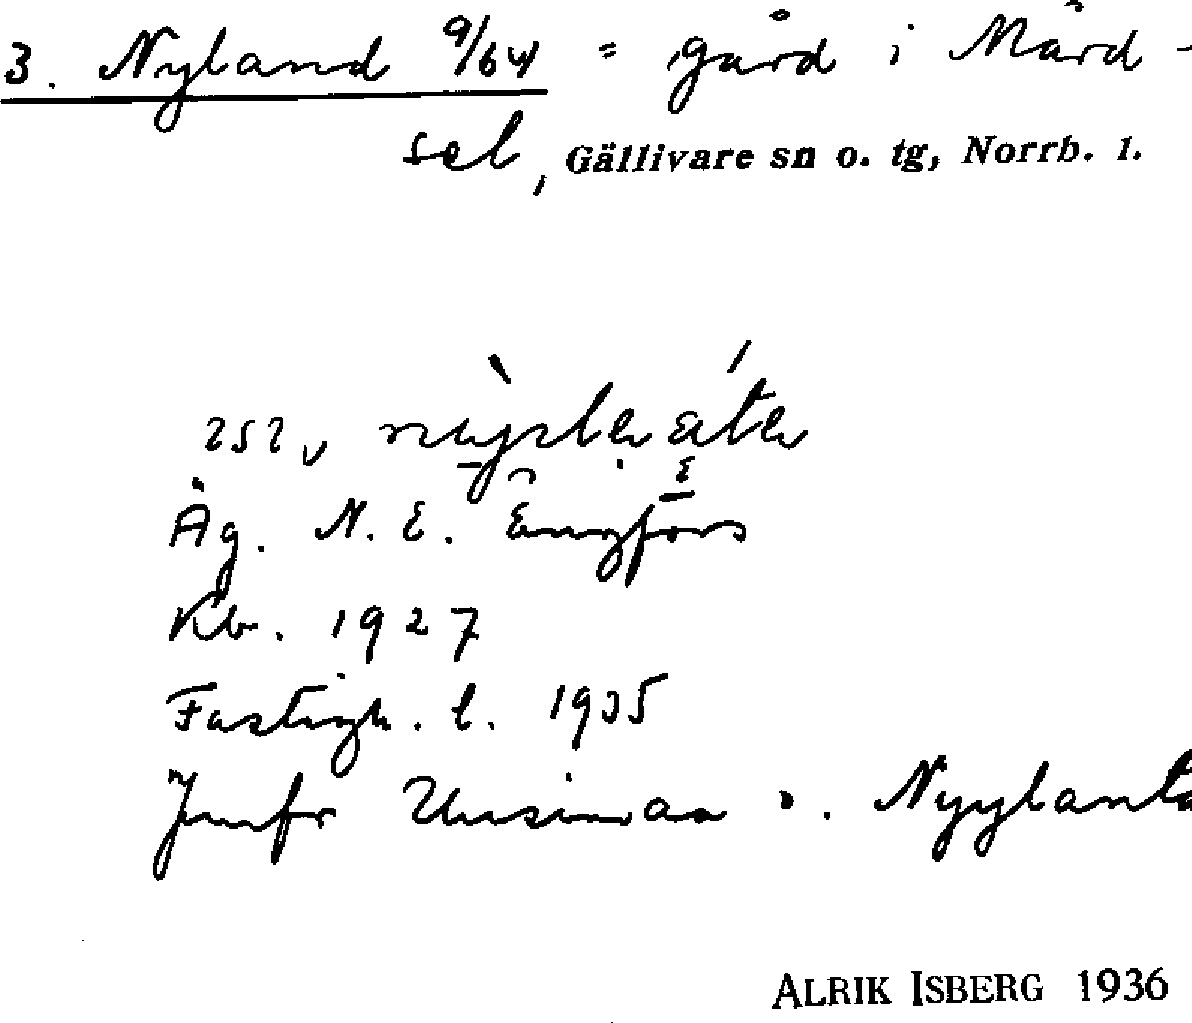 3. Nyland 9/64 = gård i Mård-
sel, Gällivare sn o. tg, Norrb. l.
Äg. N. E. Engfors
Kb. 1927
Fastigh. l. 1935
Jmfr Uusimaa o. Nyylanta
ALRIK ISBERG 1936